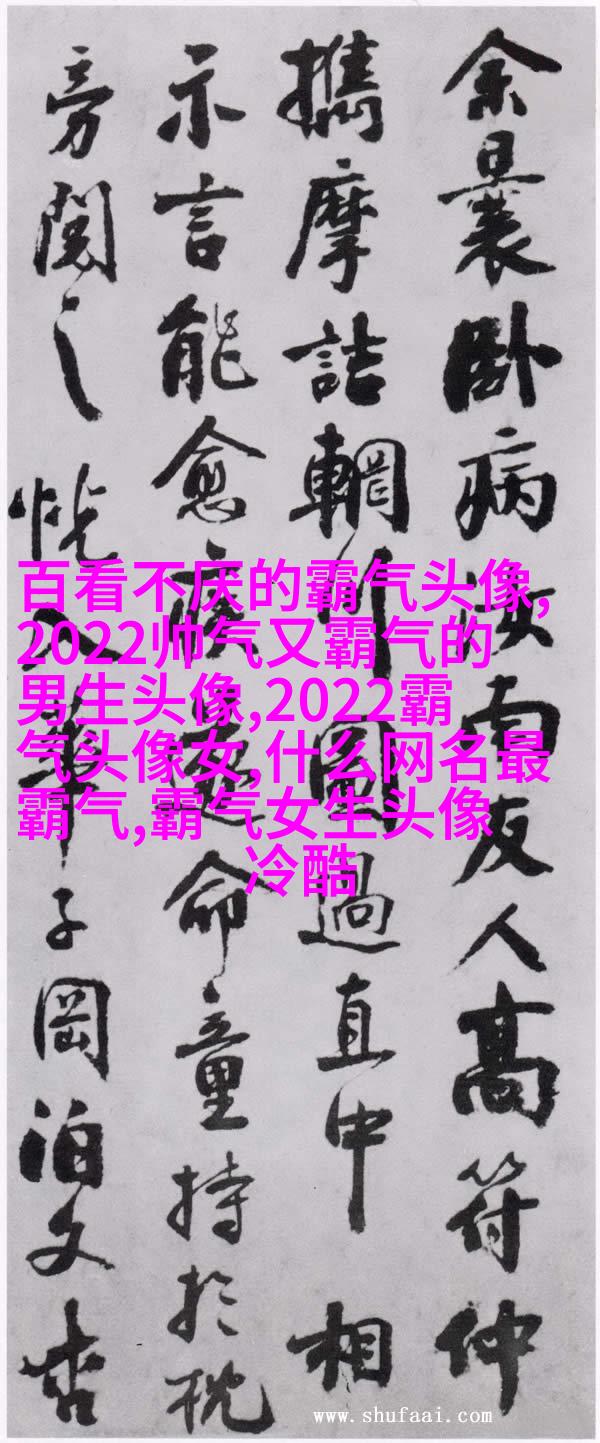 余曩卧病汝南友人高符仲
攜摩詰輞川圖過直中相
示言能愈疾遂命童持於枕
旁閱之恍入華子岡泊文杏
百看不厌的霸气头像,
2022帅气又霸气的
男生头像,2022霸
气头像女,什么网名最
霸气,霸气女生头像
冷酷
www.shufaai.com